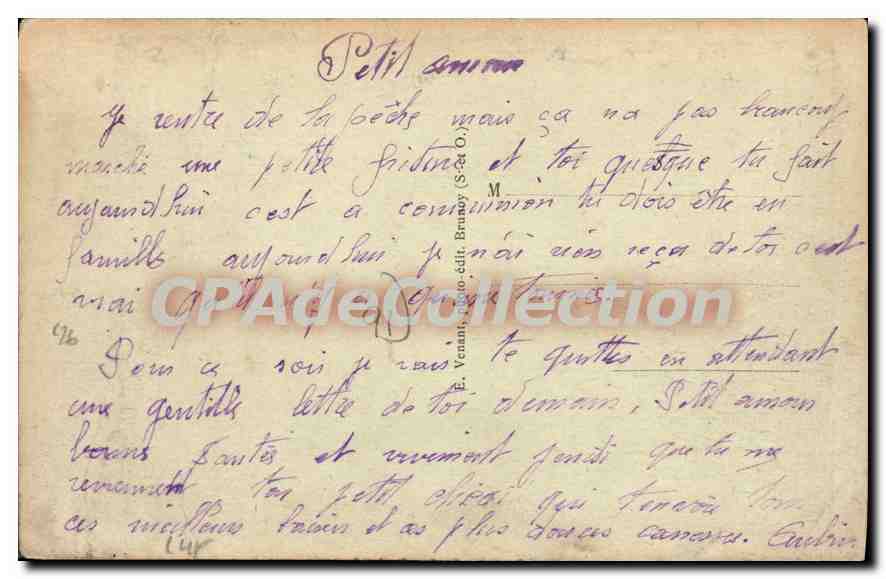 Petit amour
Je rentre de la pêche mais ça na pas beaucoup
marché une petite friture et toi quesque tu fait
aujourdhui cest a communion tu dois être en
famille aujourdhui je nai rien reça de toi cest
vrai quil ny a quune
Pour ce soir je vais te quittes en attendant
une gentille lettre de toi demain, Petit amour
bonne Santés et vivement jeudi que tu me
reviennent ton petit chéri qui tenvoie tous
ces meilleurs baisers et ces plus douces caresse.
M
E. Venant, photo-édit. Brunoy (S.-et-O.)
CPAdeCollection
91